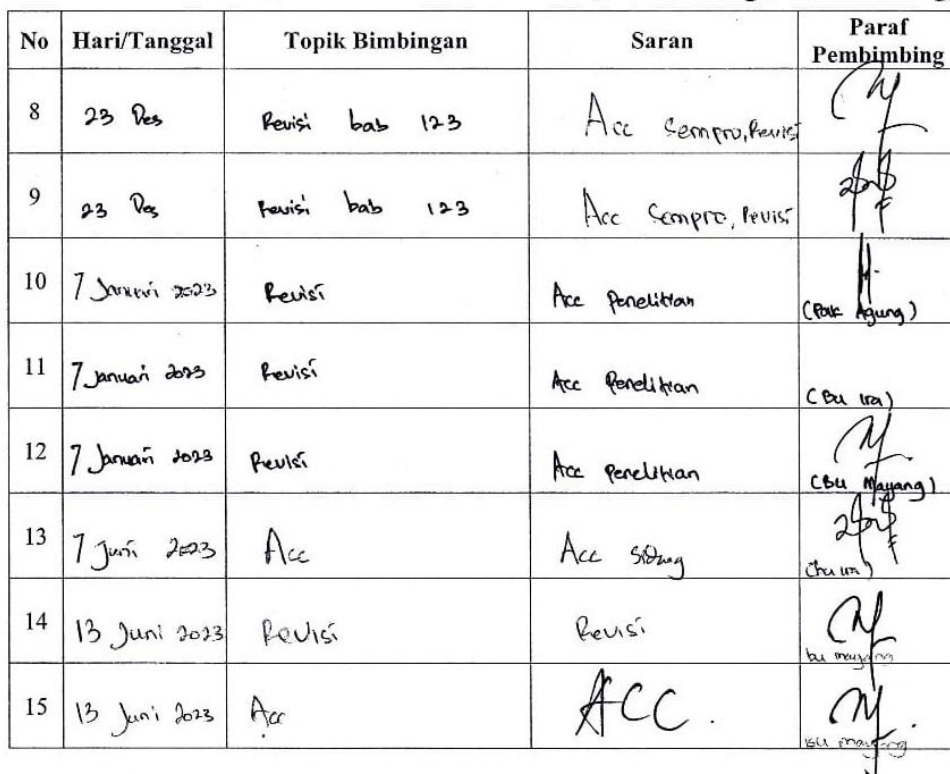 No Hari/Tanggal Topik Bimbingan Saran Paraf Pembimbing
8 23 Des Revisi bab 123 Acc Sempro, Revisi
9 23 Des Revisi bab 123 Acc Sempro, Revisi
10 7 Januari 2023 Revisi Acc Penelitian (Pak Agung)
11 7 Januari 2023 Revisi Acc Penelitian (Bu Ira)
12 7 Januari 2023 Revisi Acc Penelitian (Bu Mayang)
13 7 Juni 2023 Acc Acc Sidang
14 13 Juni 2023 Revisi Revisi bu mayang
15 13 Juni 2023 Acc ACC. bu mayang